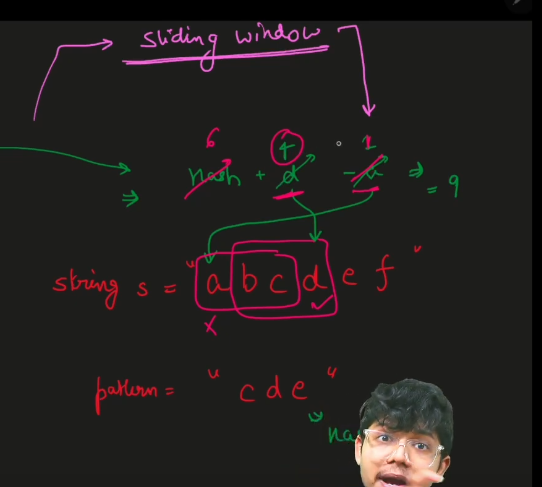 sliding window
6 4 1
hash + d - a ⇒ = 9
string s = "a b c d e f"
x
pattern = "c d e"